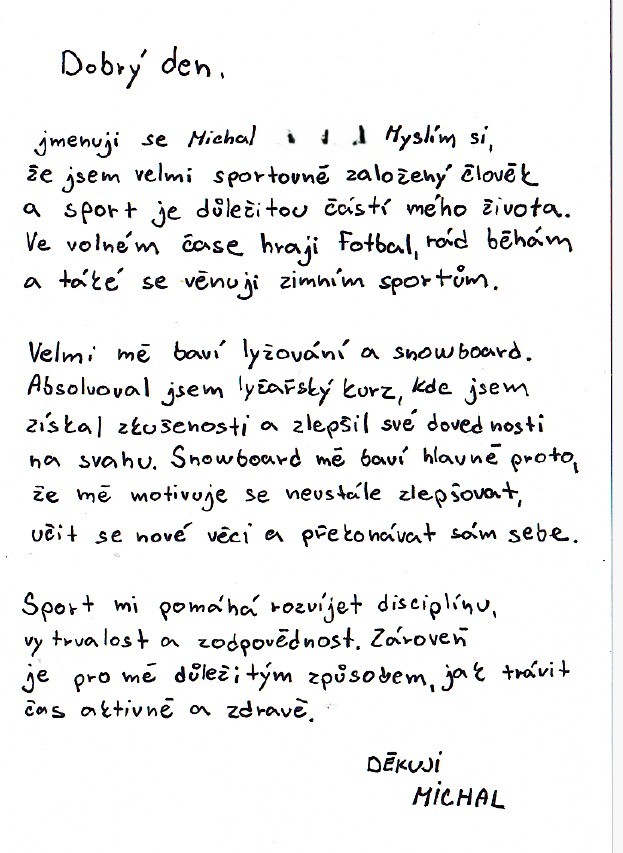 Dobrý den.
jmenuji se Michal Myslím si,
že jsem velmi sportovně založený člověk
a sport je důležitou částí mého života.
Ve volném čase hraji Fotbal, rád běhám
a také se věnuji zimním sportům.
Velmi mě baví lyžování a snowboard.
Absolvoval jsem lyžařský kurz, kde jsem
získal zkušenosti a zlepšil své dovednosti
na svahu. Snowboard mě baví hlavně proto,
že mě motivuje se neustále zlepšovat,
učit se nové věci a překonávat sám sebe.
Sport mi pomáhá rozvíjet disciplínu,
vytrvalost a zodpovědnost. Zároveň
je pro mě důležitým způsobem, jak trávit
čas aktivně a zdravě.
DĚKUJI
MICHAL